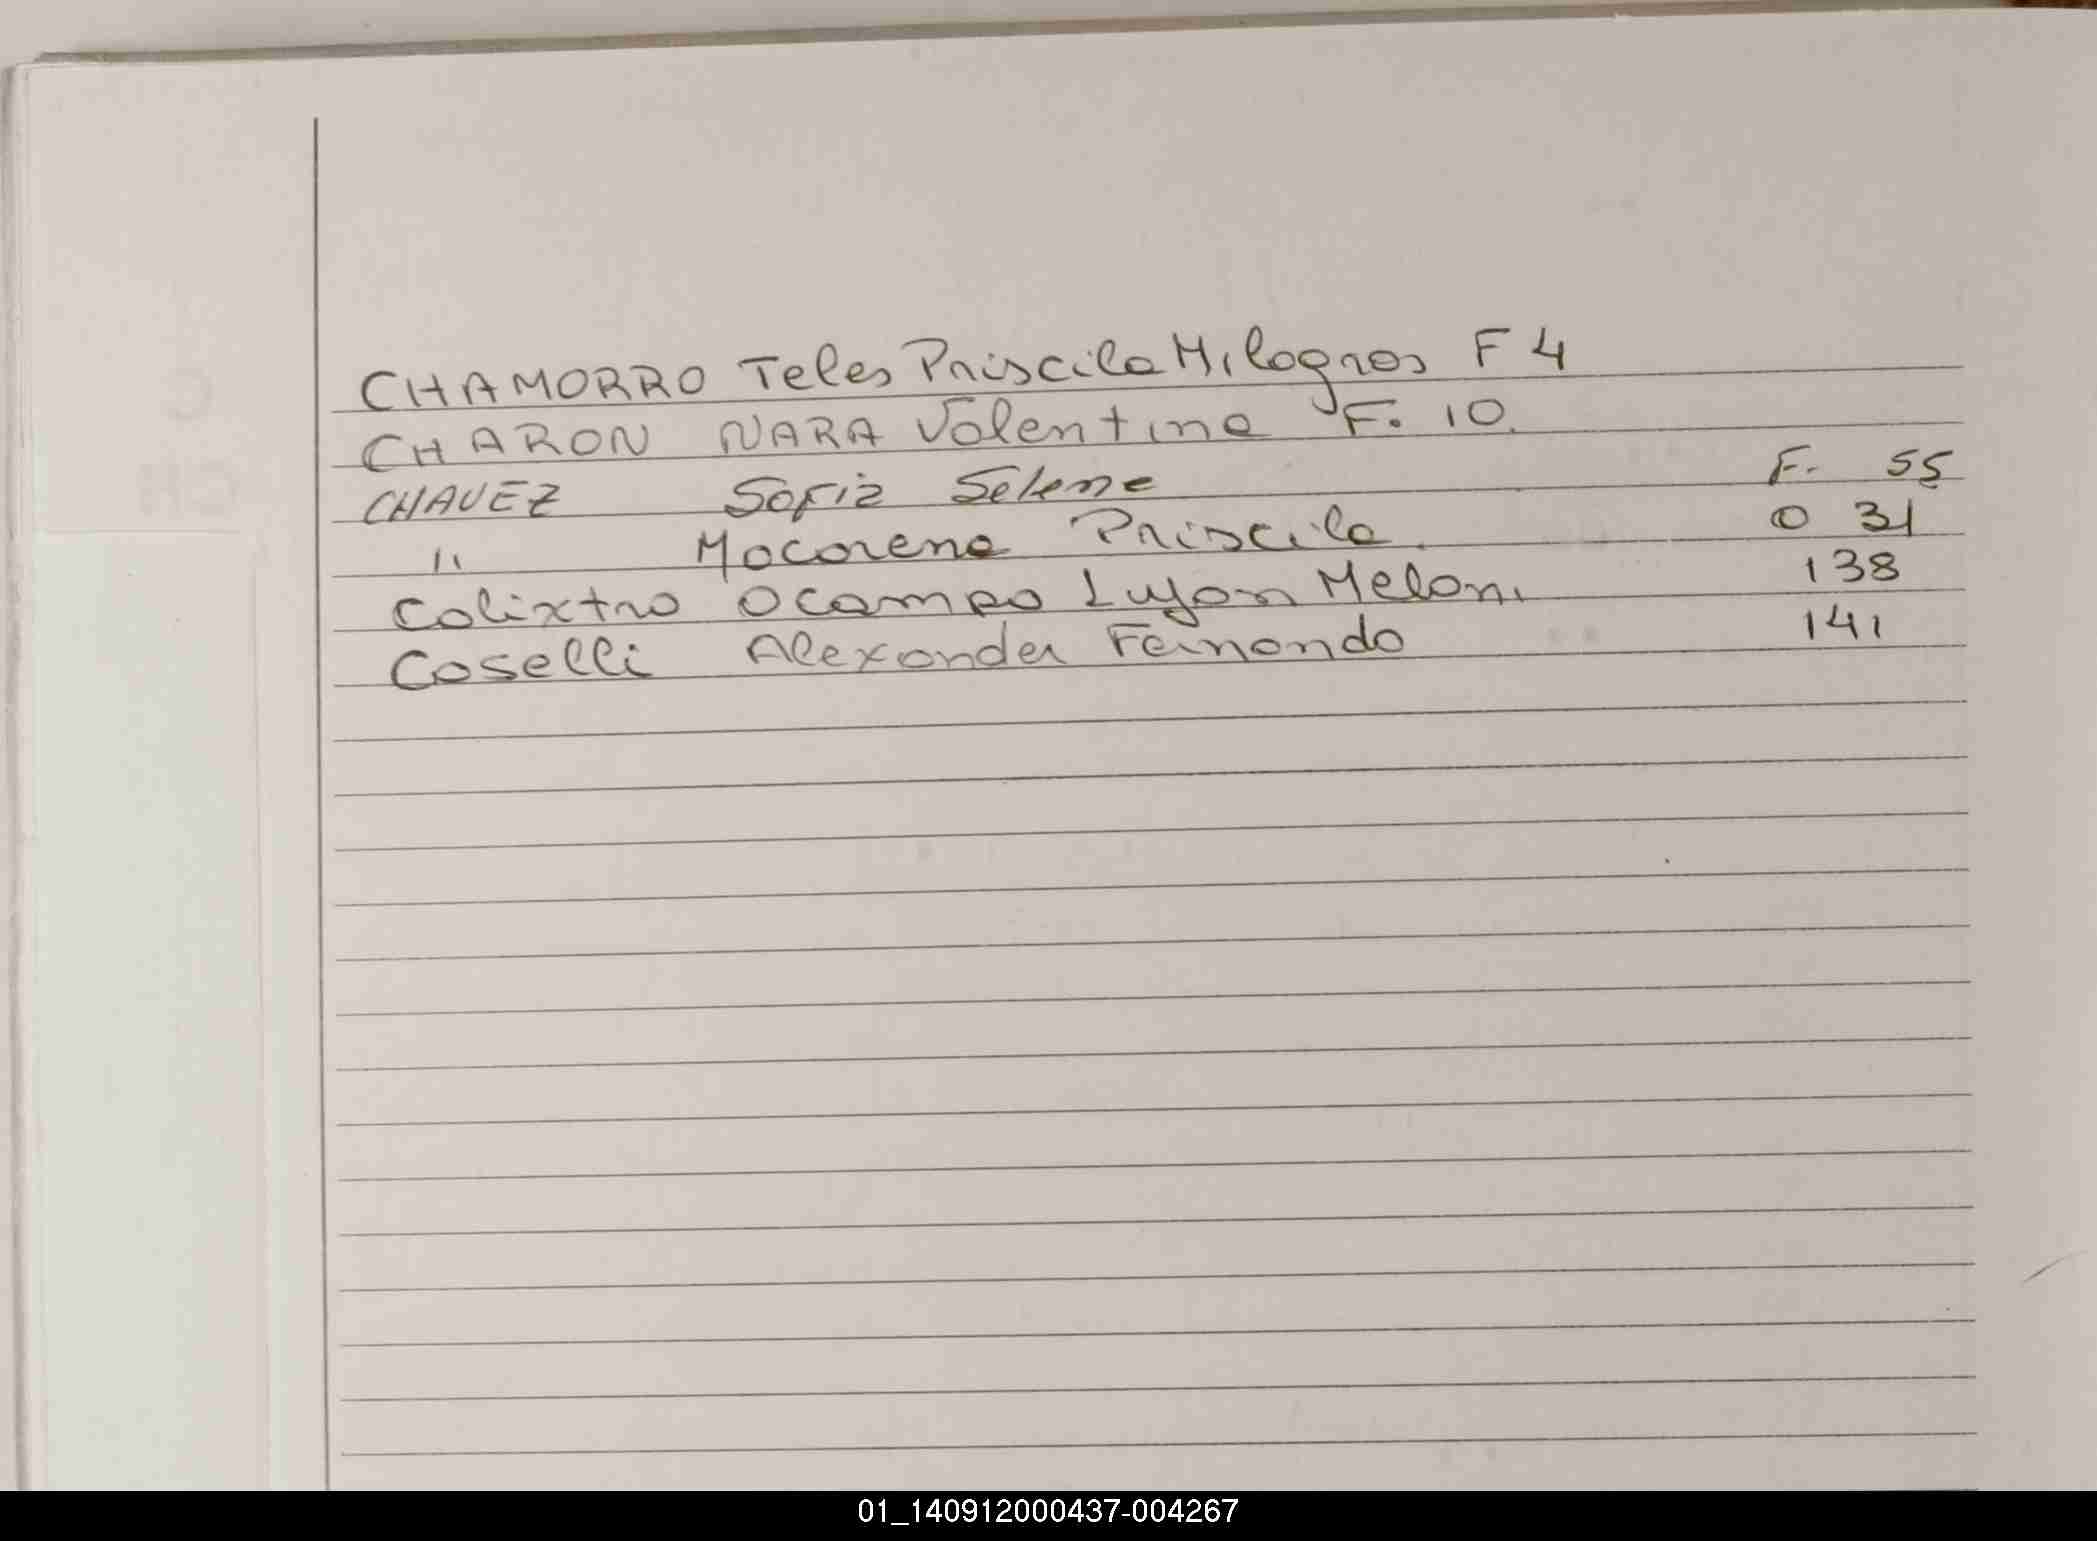 CHAMORRO Teles Priscila Milagros F 4
CHARON NARA Valentina F. 10.
CHAVEZ Sofia Selene F. 55
" Macarena Priscila O 31
Calixtro Ocampo Luyan Melani 138
Caselli Alexander Fernando 141
C
CH
01_140912000437-004267